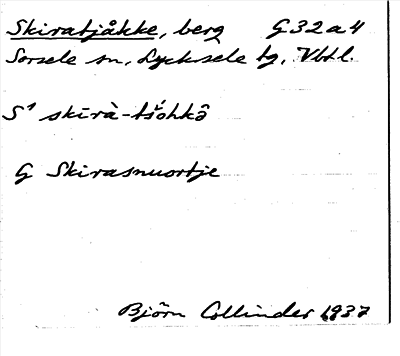 Skiratjåkke, berg G32a4
Sorsele sn, Lycksele tg, Vbtl.
S¹ skīrà-tšohkə̑
G Skirasnuortje
Björn Collinder 1937